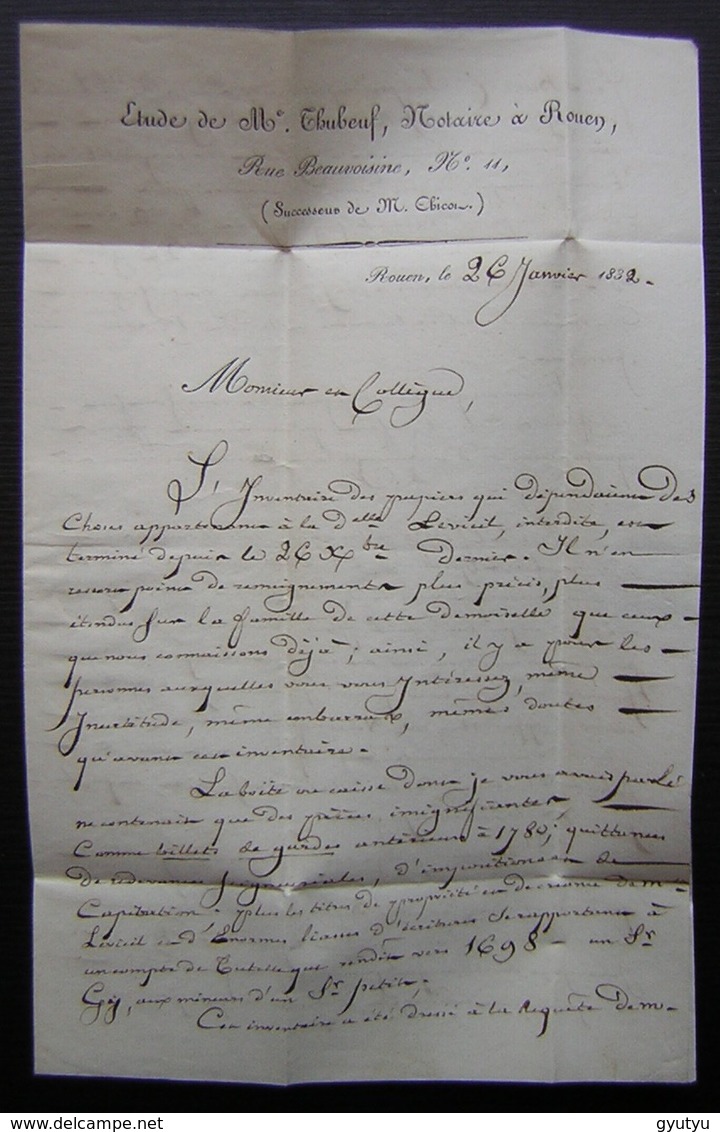 Etude de Me. Thubeuf, Notaire à Rouen,
Rue Beauvoisine, No. 11,
(Successeur de M. Chicot.)
Rouen, le 26 Janvier 1832.
Monsieur et Collègue,
L'Inventaire des papiers qui dépendaient des
Choses appartenant à la delle Levieil, interdite, est
terminé depuis le 26 Xbre dernier. Il n'en
ressort point de renseignements plus précis, plus
étendus sur la famille de cette demoiselle que ceux
que nous connaissons déjà; ainsi, il y a pour les
personnes auxquelles vous vous intéressez, même
Incertitude, même embarras, mêmes doutes
qu'avant cet inventaire.
La boîte ou caisse dont je vous avais parlé
ne contenait que des pièces insignifiantes,
Comme billets de gardes antérieurs à 1780; quittances
de redevances seigneuriales, d'impositions et de
Capitation; plus les titres de propriété et de créance de Mlle
Levieil et d'Enormes liasses d'écritures se rapportant à
un compte de Tutelle que rendit vers 1698 un Sr
Gy, aux mineurs d'un Sr petit;
Cet inventaire a été dressé à la Requête de M.
gyutyu